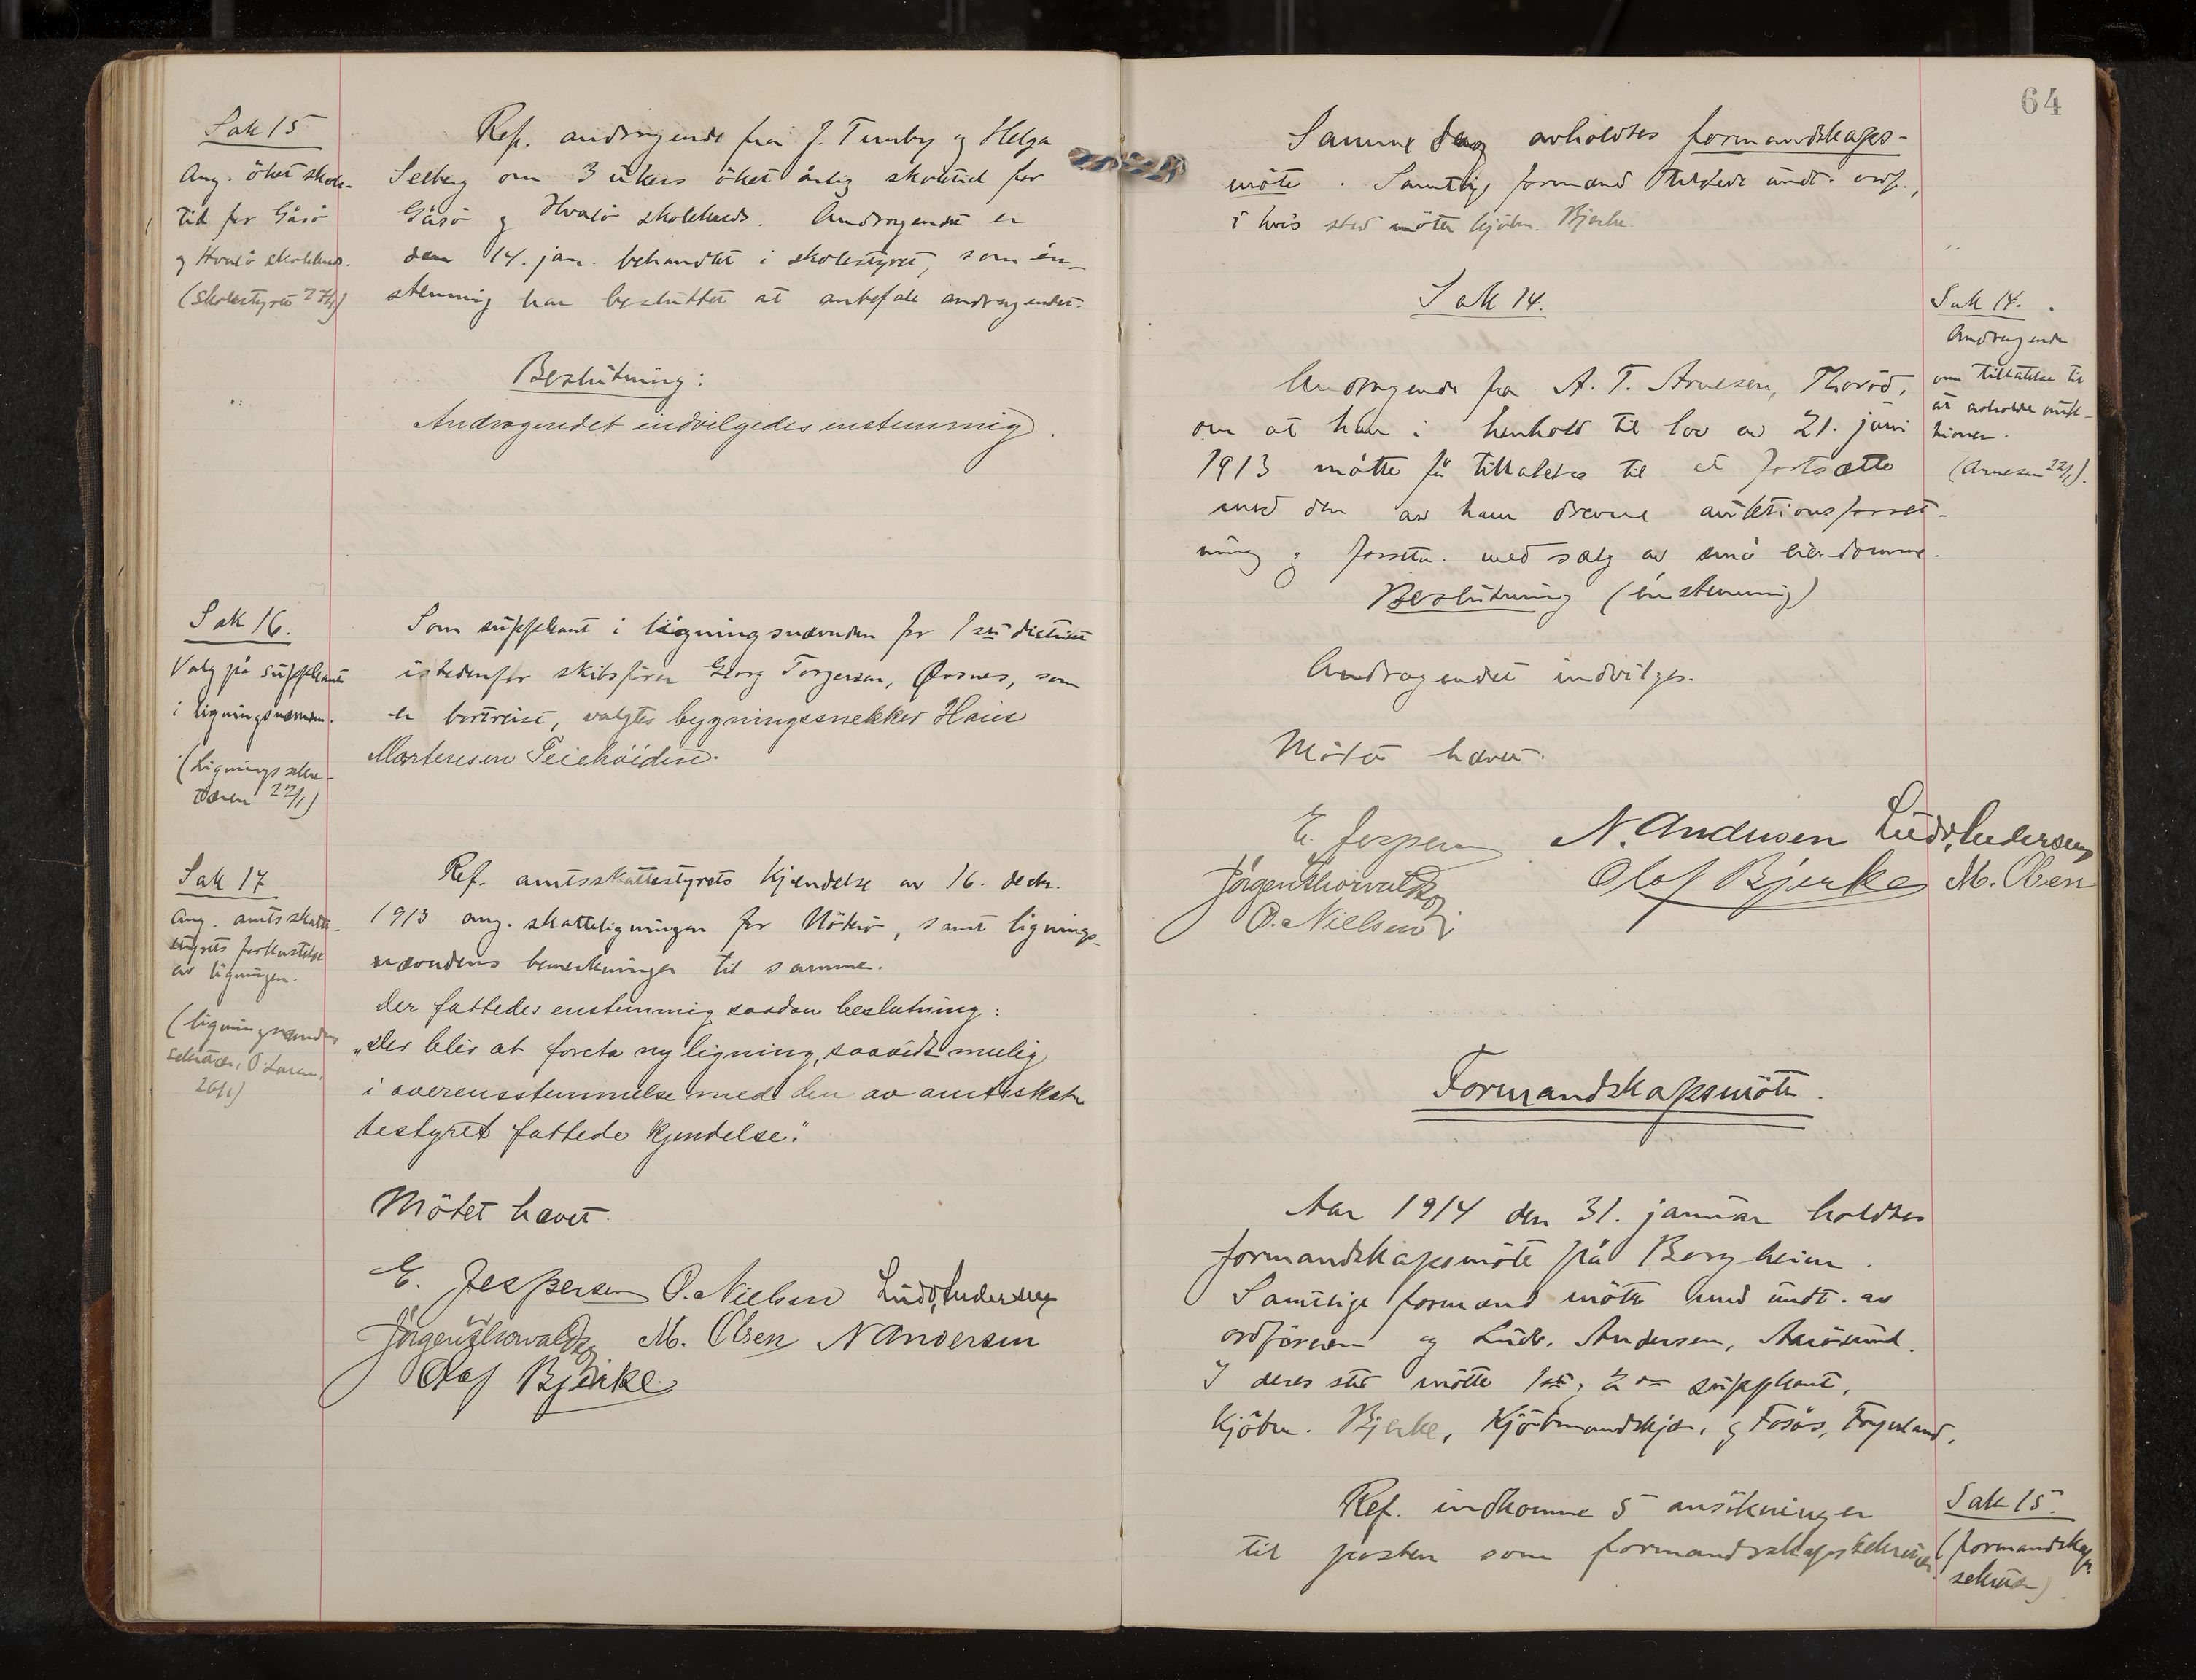 Sak 15
Ang. öket skole-
tid for Gåsö
og Hvalö skolekreds.
(Skolestyret 27/1)
Ref. andragende fra J. Tumby og Helga
Selberg om 3 ukers öket årlig skoletid for
Gåsö og Hvalö skolekreds. Andragendet er
den 14. jan. behandlet i skolestyret, som en-
stemmig har besluttet at anbefale andragendet.
Beslutning:
Andragendet indvilgedes enstemmig.
Sak 16.
Valg på suppleant
i ligningsnævnden.
(Ligningssekre-
tæren 22/1)
Som suppleant i ligningsnævnden for 1ste distrikt
istedenfor skibsfører Georg Torgersen, Ørsnes, som
er bortreist, valgtes bygningssnekker Hans
Martensen Teiehöiden.
Sak 17
Ang. amtsskatte-
styrets forkastelse
av ligningen.
(ligningsnævndens
sekretær, O. Larsen,
26/1)
Ref. amtsskattestyrets kjendelse av 16. decbr.
1913 ang. skatteligningen for Nöterö, samt lignings-
nævndens bemerkninger til samme.
Der fattedes enstemmig saadan beslutning:
"Der blir at foreta ny ligning, saavidt mulig
i overensstemmelse med den av amtsskat-
testyret fattede kjendelse."
Mötet hævet.
E. Jespersen O. Nielsen Ludv. Andersen
Jörgen Thorvaldsen M. Olsen N Andersen
Olaf Bjerke
64
Samme dag avholdtes formandskaps-
möte. Samtlige formænd tilstede undt. ordf.,
i hvis sted möter kjöbm. Bjerke.
Sak 14.
Sak 14.
Andragende
om tillatelse til
at avholde auk-
tioner.
(Arnesen 22/1).
Andragende fra A. T. Arnesen, Thoröd,
om at han i henhold til lov av 21. juni
1913 måtte få tillatelse til at fortsætte
med den av ham drevne auktionsforret-
ning og forretn. med salg av små eiendomme.
Beslutning (enstemmig)
Andragendet indvilges.
Mötet hævet.
E. Jespersen N. Andersen Ludv. Andersen
Jörgen Thorvaldsen Olaf Bjerke M. Olsen
O. Nielsen
Formandskapsmöte.
Aar 1914 den 31. januar holdtes
formandskapsmöte på Borgheim.
Samtlige formænd mötte med undt. av
ordföreren og Ludv. Andersen, Årösund.
I deres sted mötte 1ste og 2den suppleant,
kjöbm. Bjerke, Kjöbmandskjær, og Fosås, Föynland.
Sak 15.
(formandskaps-
sekretær).
Ref. indkomne 5 ansökninger
til posten som formandsskapssekretær